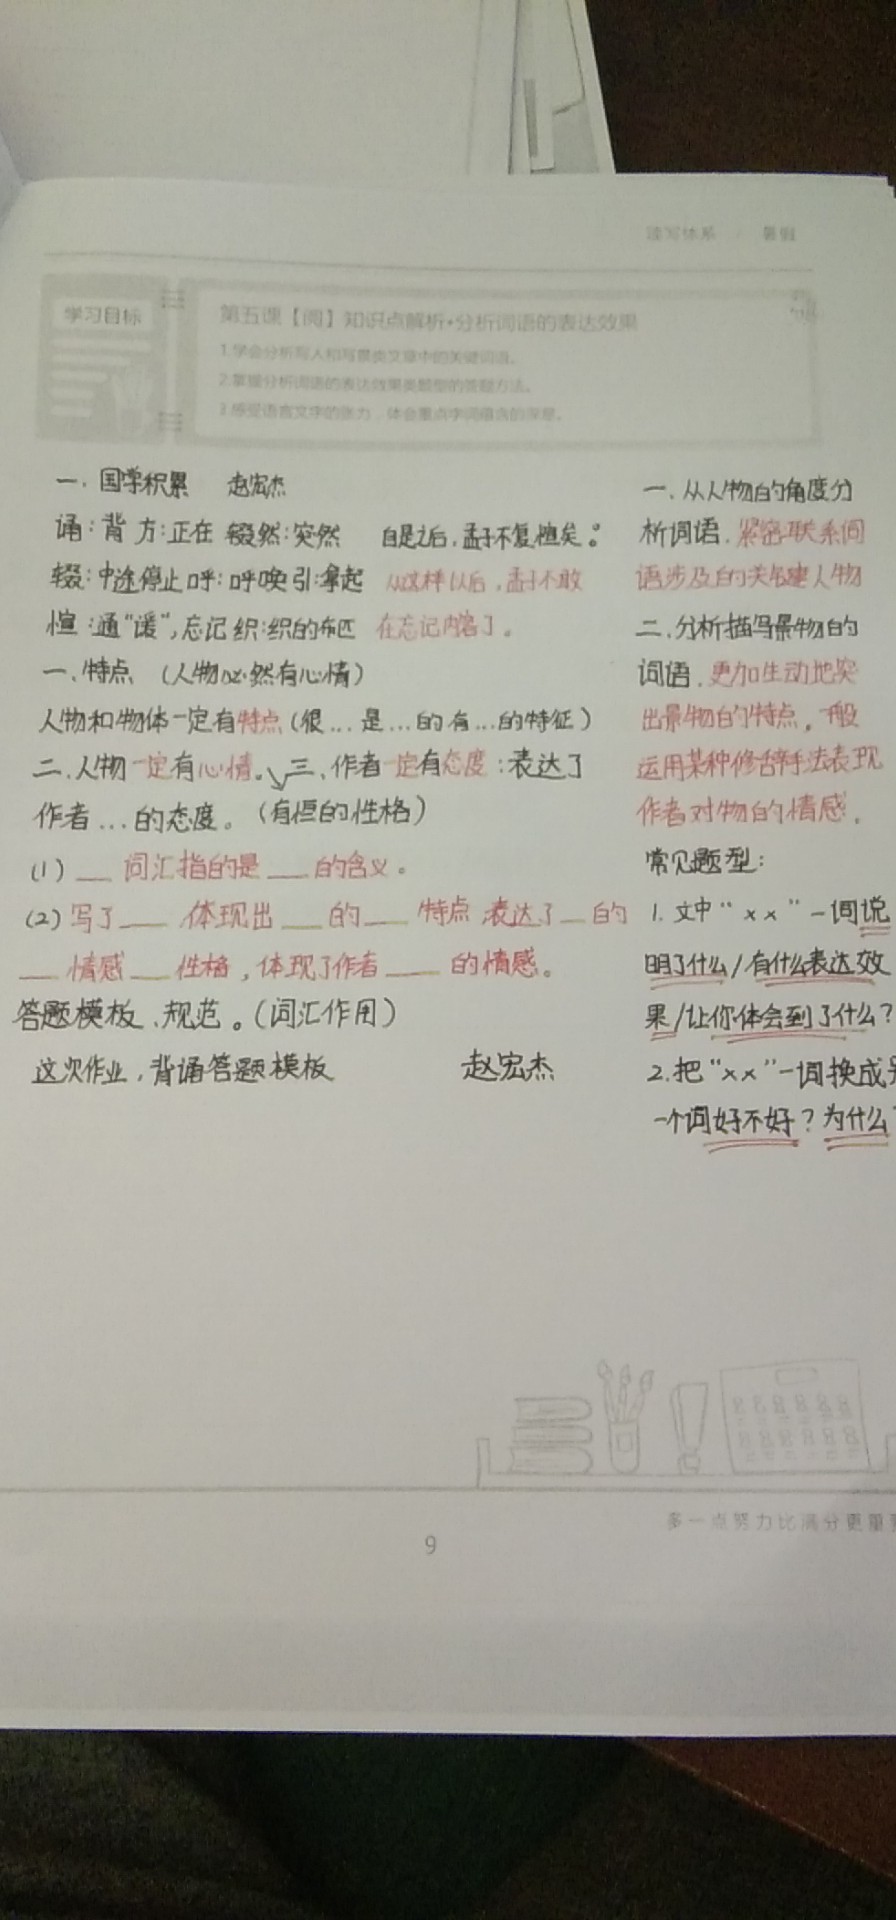 读写体系 / 暑假
学习目标
第五课【阅】知识点解析·分析词语的表达效果
1.学会分析写人和写景类文章中的关键词语。
2.掌握分析词语的表达效果类题型的答题方法。
3.感受语言文字的张力，体会重点字词蕴含的深意。
一、国学积累 赵宏杰
诵：背 方：正在 辍然：突然 自是之后，孟子不复諠矣。
辍：中途停止 呼：呼唤 引：拿起 从这样以后，孟子不敢
諠：通“谖”，忘记 织：织的布匹 在忘记内容了。
一、特点 （人物必然有心情）
人物和物体一定有特点（很…是…的有…的特征）
二、人物一定有心情。三、作者一定有态度：表达了
作者…的态度。（有恒的性格）
(1) __ 词汇指的是 __ 的含义。
(2) 写了 __ 体现出 __ 的 __ 特点 表达了 __ 的
__ 情感 __ 性格，体现了作者 __ 的情感。
答题模板、规范。（词汇作用）
这次作业，背诵答题模板 赵宏杰
一、从人物的角度分
析词语，紧密联系词
语涉及的关键人物
二、分析描写景物的
词语，更加生动地突
出景物的特点，一般
运用某种修辞手法表现
作者对物的情感。
常见题型：
1. 文中“××”一词说
明了什么/有什么表达效
果/让你体会到了什么？
2.把“××”一词换成
一个词好不好？为什么
多一点努力比满分更重
9